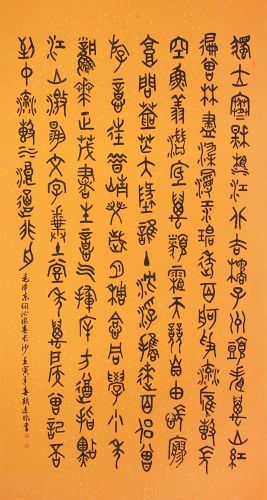 獨立寒秋湘江北去橘子洲頭看萬山紅
遍層林盡染漫江碧透百舸爭流鷹擊長
空魚翔淺底萬類霜天競自由悵寥
廓問蒼茫大地誰主沉浮攜來百侶曾
遊憶往昔崢嶸歲月稠恰同學少年
風華正茂書生意氣揮斥方遒指點
江山激揚文字糞土當年萬戶侯曾記否
到中流擊水浪遏飛舟
毛澤東詞沁園春長沙 壬寅年春